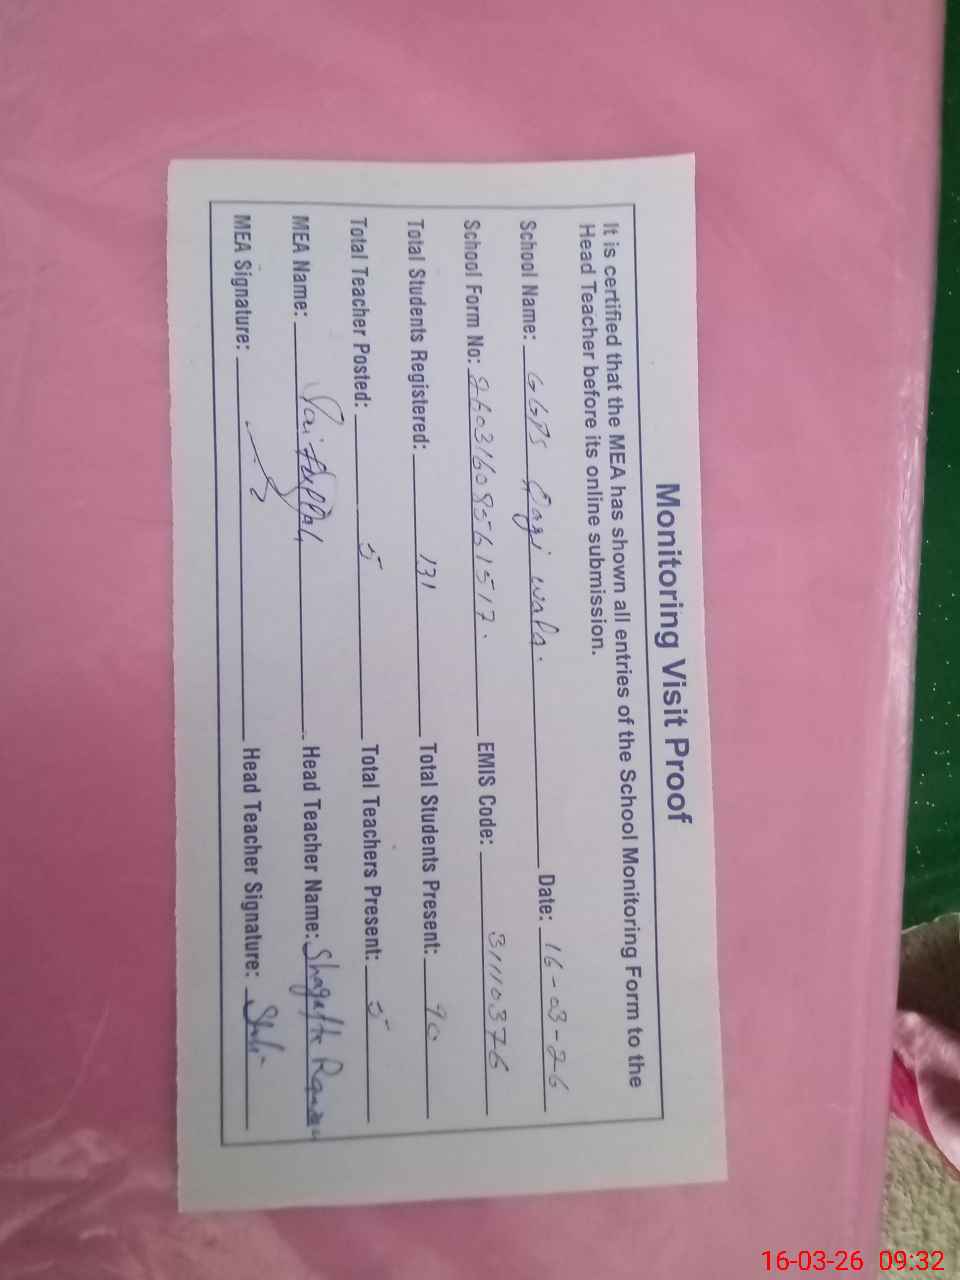 Monitoring Visit Proof
It is certified that the MEA has shown all entries of the School Monitoring Form to the
Head Teacher before its online submission.
School Name: GGPS Qazi wala. Date: 16-03-26
School Form No: 260316085561517. EMIS Code: 31110376
Total Students Registered: 131 Total Students Present: 90
Total Teacher Posted: 5 Total Teachers Present: 5
MEA Name: Saif Head Teacher Name: Shagufta
MEA Signature: Head Teacher Signature:
16-03-26 09:32